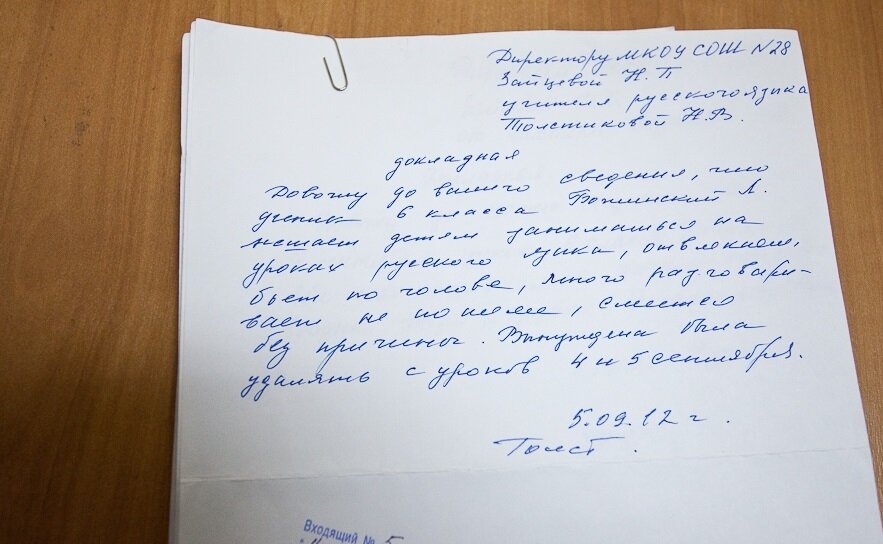 Директору МКОУ СОШ N28
Зайцевой Н. П
учителя русского языка
Толстиковой Н.В.
докладная
Довожу до вашего сведения, что
ученик 6 класса Божинский Л.
мешает детям заниматься на
уроках русского языка, отвлекает,
бьет по голове, много разговари-
вает не по теме, смеется
без причины. Вынуждена была
удалять с уроков 4 и 5 сентября.
5.09.12 г.
Толст.
Входящий № 5